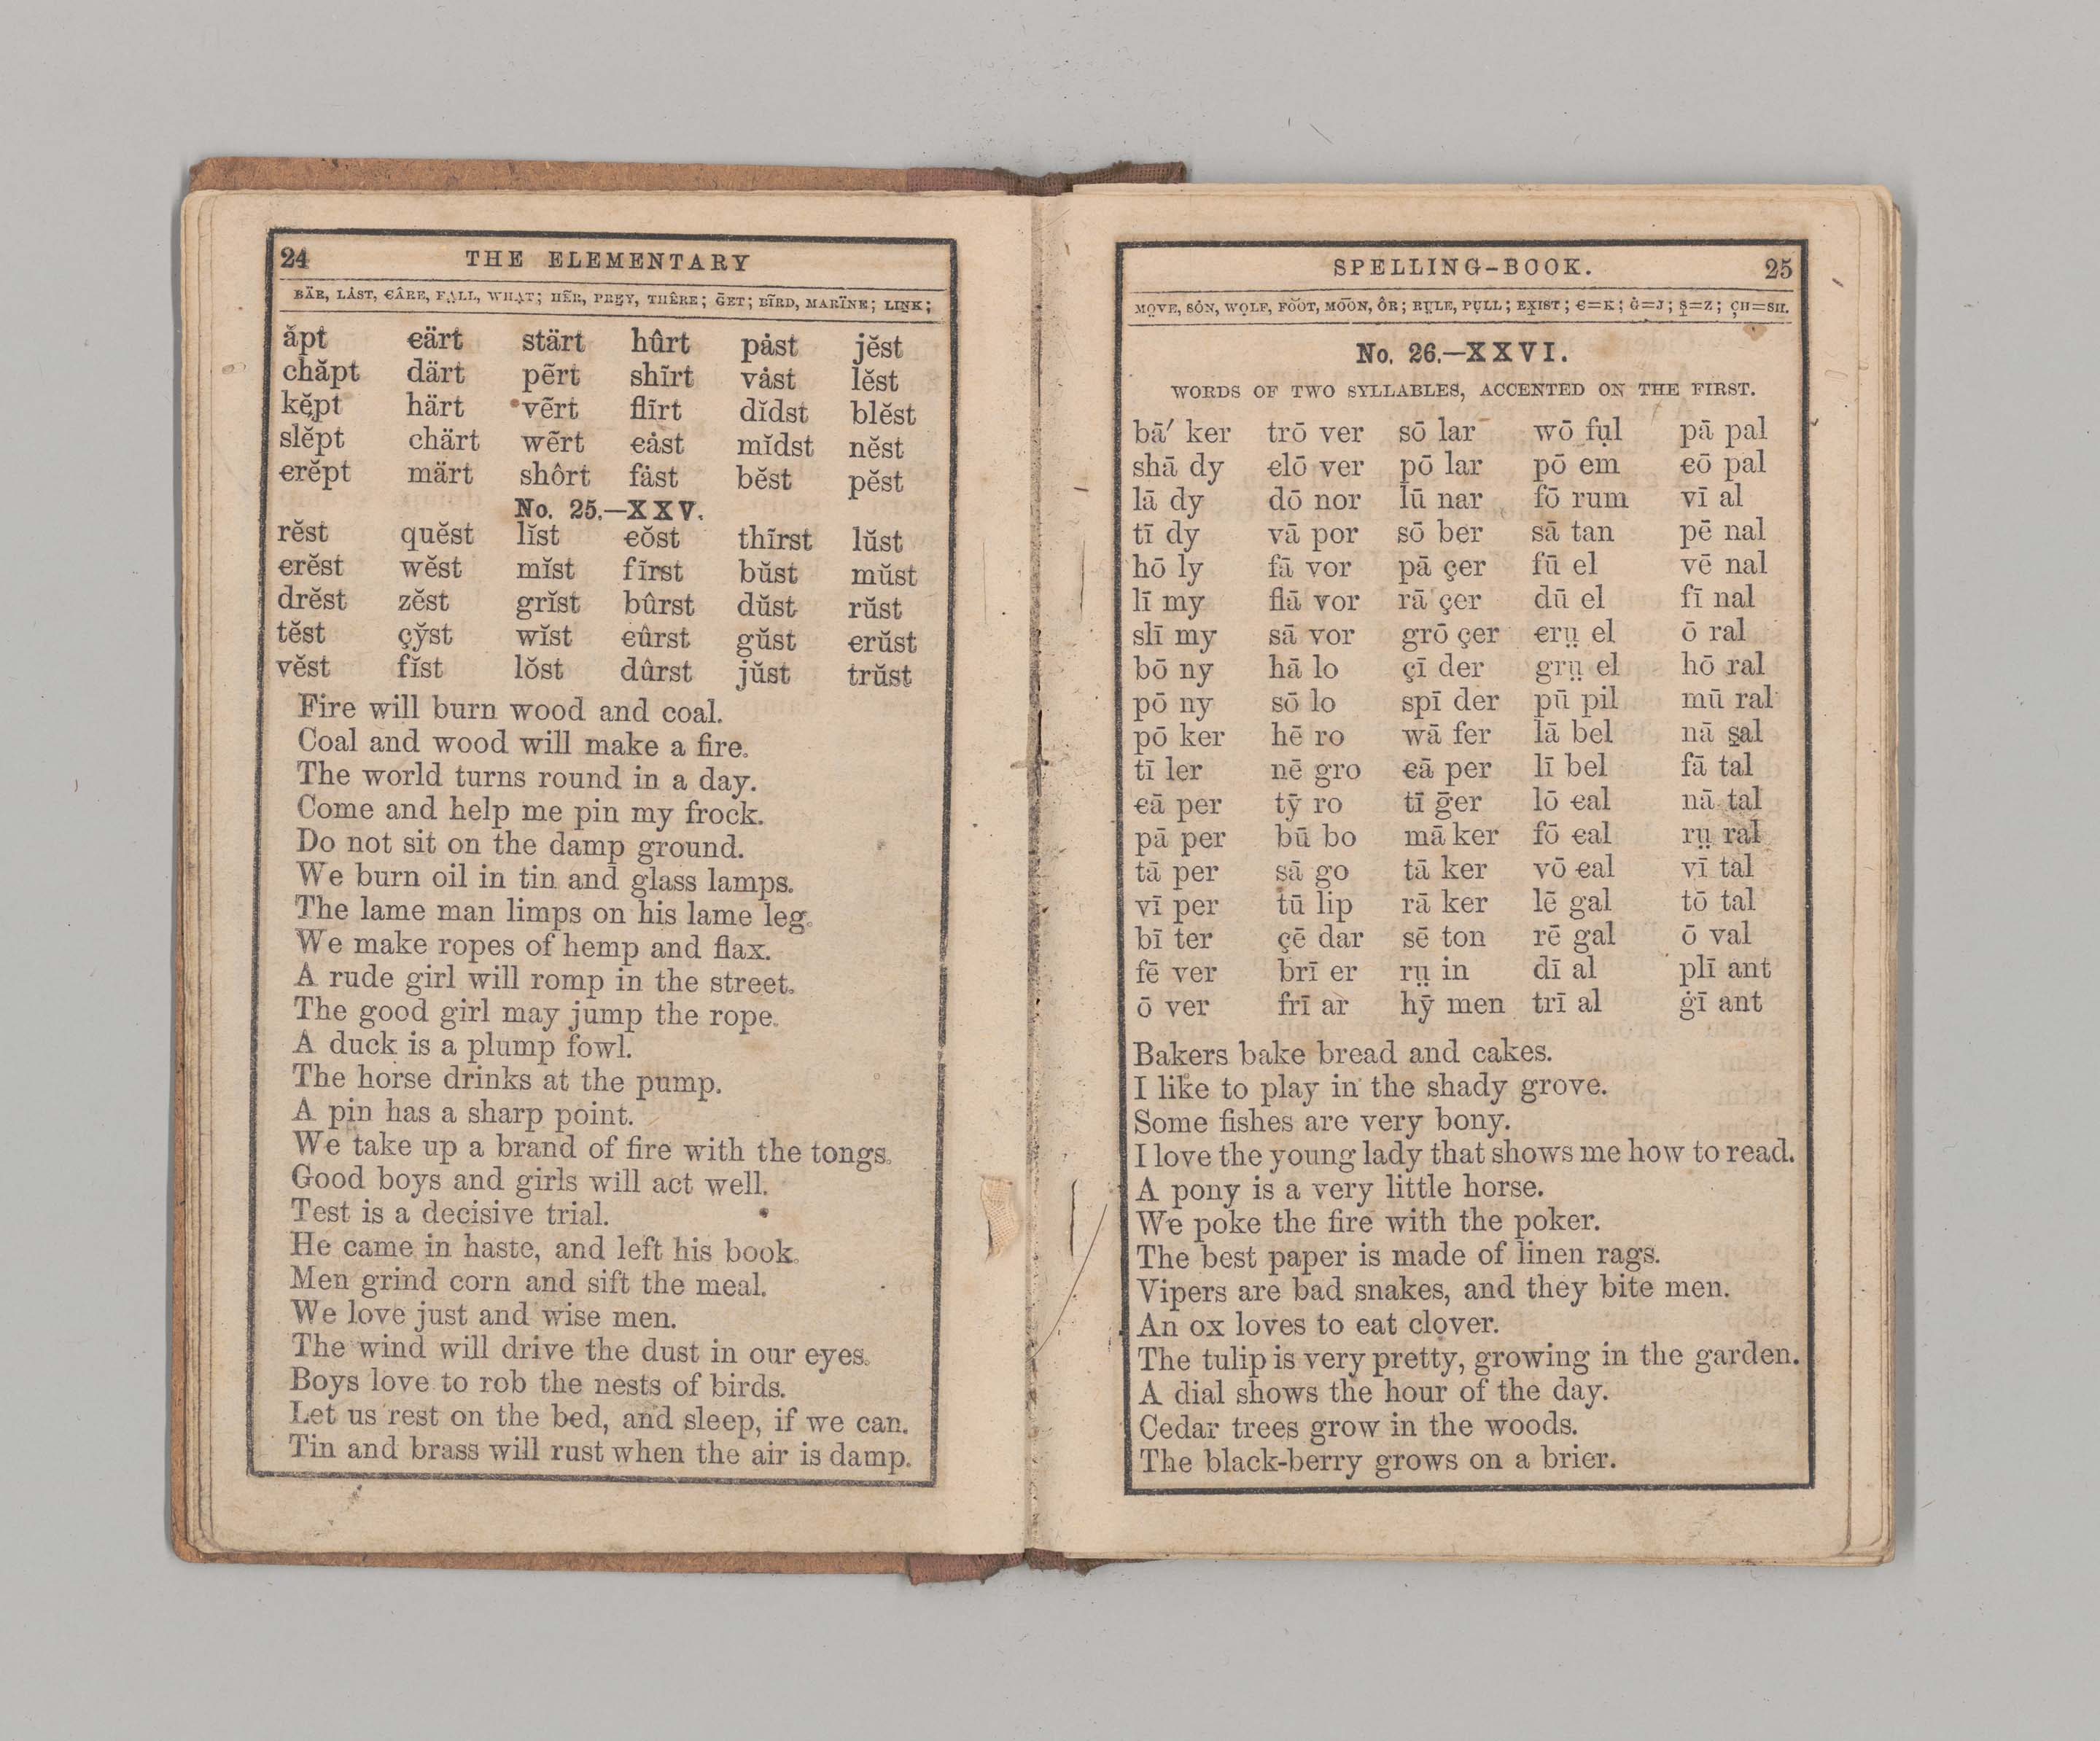 24 THE ELEMENTARY
BÄR, LȦST, ЄÂRE, FA̤LL, WHẠT; HẼR, PRE̱Y, THÊRE; ḠET; BĨRD, MARÏNE; LIṈK;
ăpt єärt stärt hûrt pȧst jĕst
chăpt därt pẽrt shĩrt vȧst lĕst
kĕpt härt vẽrt flĩrt dĭdst blĕst
slĕpt chärt wẽrt єȧst mĭdst nĕst
єrĕpt märt shôrt fȧst bĕst pĕst
No. 25.—XXV.
rĕst quĕst lĭst єŏst thĩrst lŭst
єrĕst wĕst mĭst fĩrst bŭst mŭst
drĕst zĕst grĭst bûrst dŭst rŭst
tĕst çy̆st wĭst єûrst gŭst єrŭst
vĕst fĭst lŏst dûrst jŭst trŭst
Fire will burn wood and coal.
Coal and wood will make a fire.
The world turns round in a day.
Come and help me pin my frock.
Do not sit on the damp ground.
We burn oil in tin and glass lamps.
The lame man limps on his lame leg.
We make ropes of hemp and flax.
A rude girl will romp in the street.
The good girl may jump the rope.
A duck is a plump fowl.
The horse drinks at the pump.
A pin has a sharp point.
We take up a brand of fire with the tongs.
Good boys and girls will act well.
Test is a decisive trial.
He came in haste, and left his book.
Men grind corn and sift the meal.
We love just and wise men.
The wind will drive the dust in our eyes.
Boys love to rob the nests of birds.
Let us rest on the bed, and sleep, if we can.
Tin and brass will rust when the air is damp.
SPELLING-BOOK. 25
MO̤VE, SȮN, WỌLF, FO͝OT, MO͞ON, ÔR; RṲLE, PỤLL; EX̱IST; Є=K; Ġ=J; S̱=Z; ÇH=SH.
No. 26.—XXVI.
WORDS OF TWO SYLLABLES, ACCENTED ON THE FIRST.
bā′ ker trō ver sō lar wō fụl pā pal
shā dy єlō ver pō lar pō em єō pal
lā dy dō nor lū nar fō rum vī al
tī dy vā por sō ber sā tan pē nal
hō ly fā vor pā çer fū el vē nal
lī my flā vor rā çer dū el fī nal
slī my sā vor grō çer єrṳ el ō ral
bō ny hā lo çī der grṳ el hō ral
pō ny sō lo spī der pū pil mū ral
pō ker hē ro wā fer lā bel nā s̱al
tī ler nē gro єā per lī bel fā tal
єā per tȳ ro tī ḡer lō єal nā tal
pā per bū bo mā ker fō єal rṳ ral
tā per sā go tā ker vō єal vī tal
vī per tū lip rā ker lē gal tō tal
bī ter çē dar sē ton rē gal ō val
fē ver brī er rṳ in dī al plī ant
ō ver frī ar hȳ men trī al ġī ant
Bakers bake bread and cakes.
I like to play in the shady grove.
Some fishes are very bony.
I love the young lady that shows me how to read.
A pony is a very little horse.
We poke the fire with the poker.
The best paper is made of linen rags.
Vipers are bad snakes, and they bite men.
An ox loves to eat clover.
The tulip is very pretty, growing in the garden.
A dial shows the hour of the day.
Cedar trees grow in the woods.
The black-berry grows on a brier.